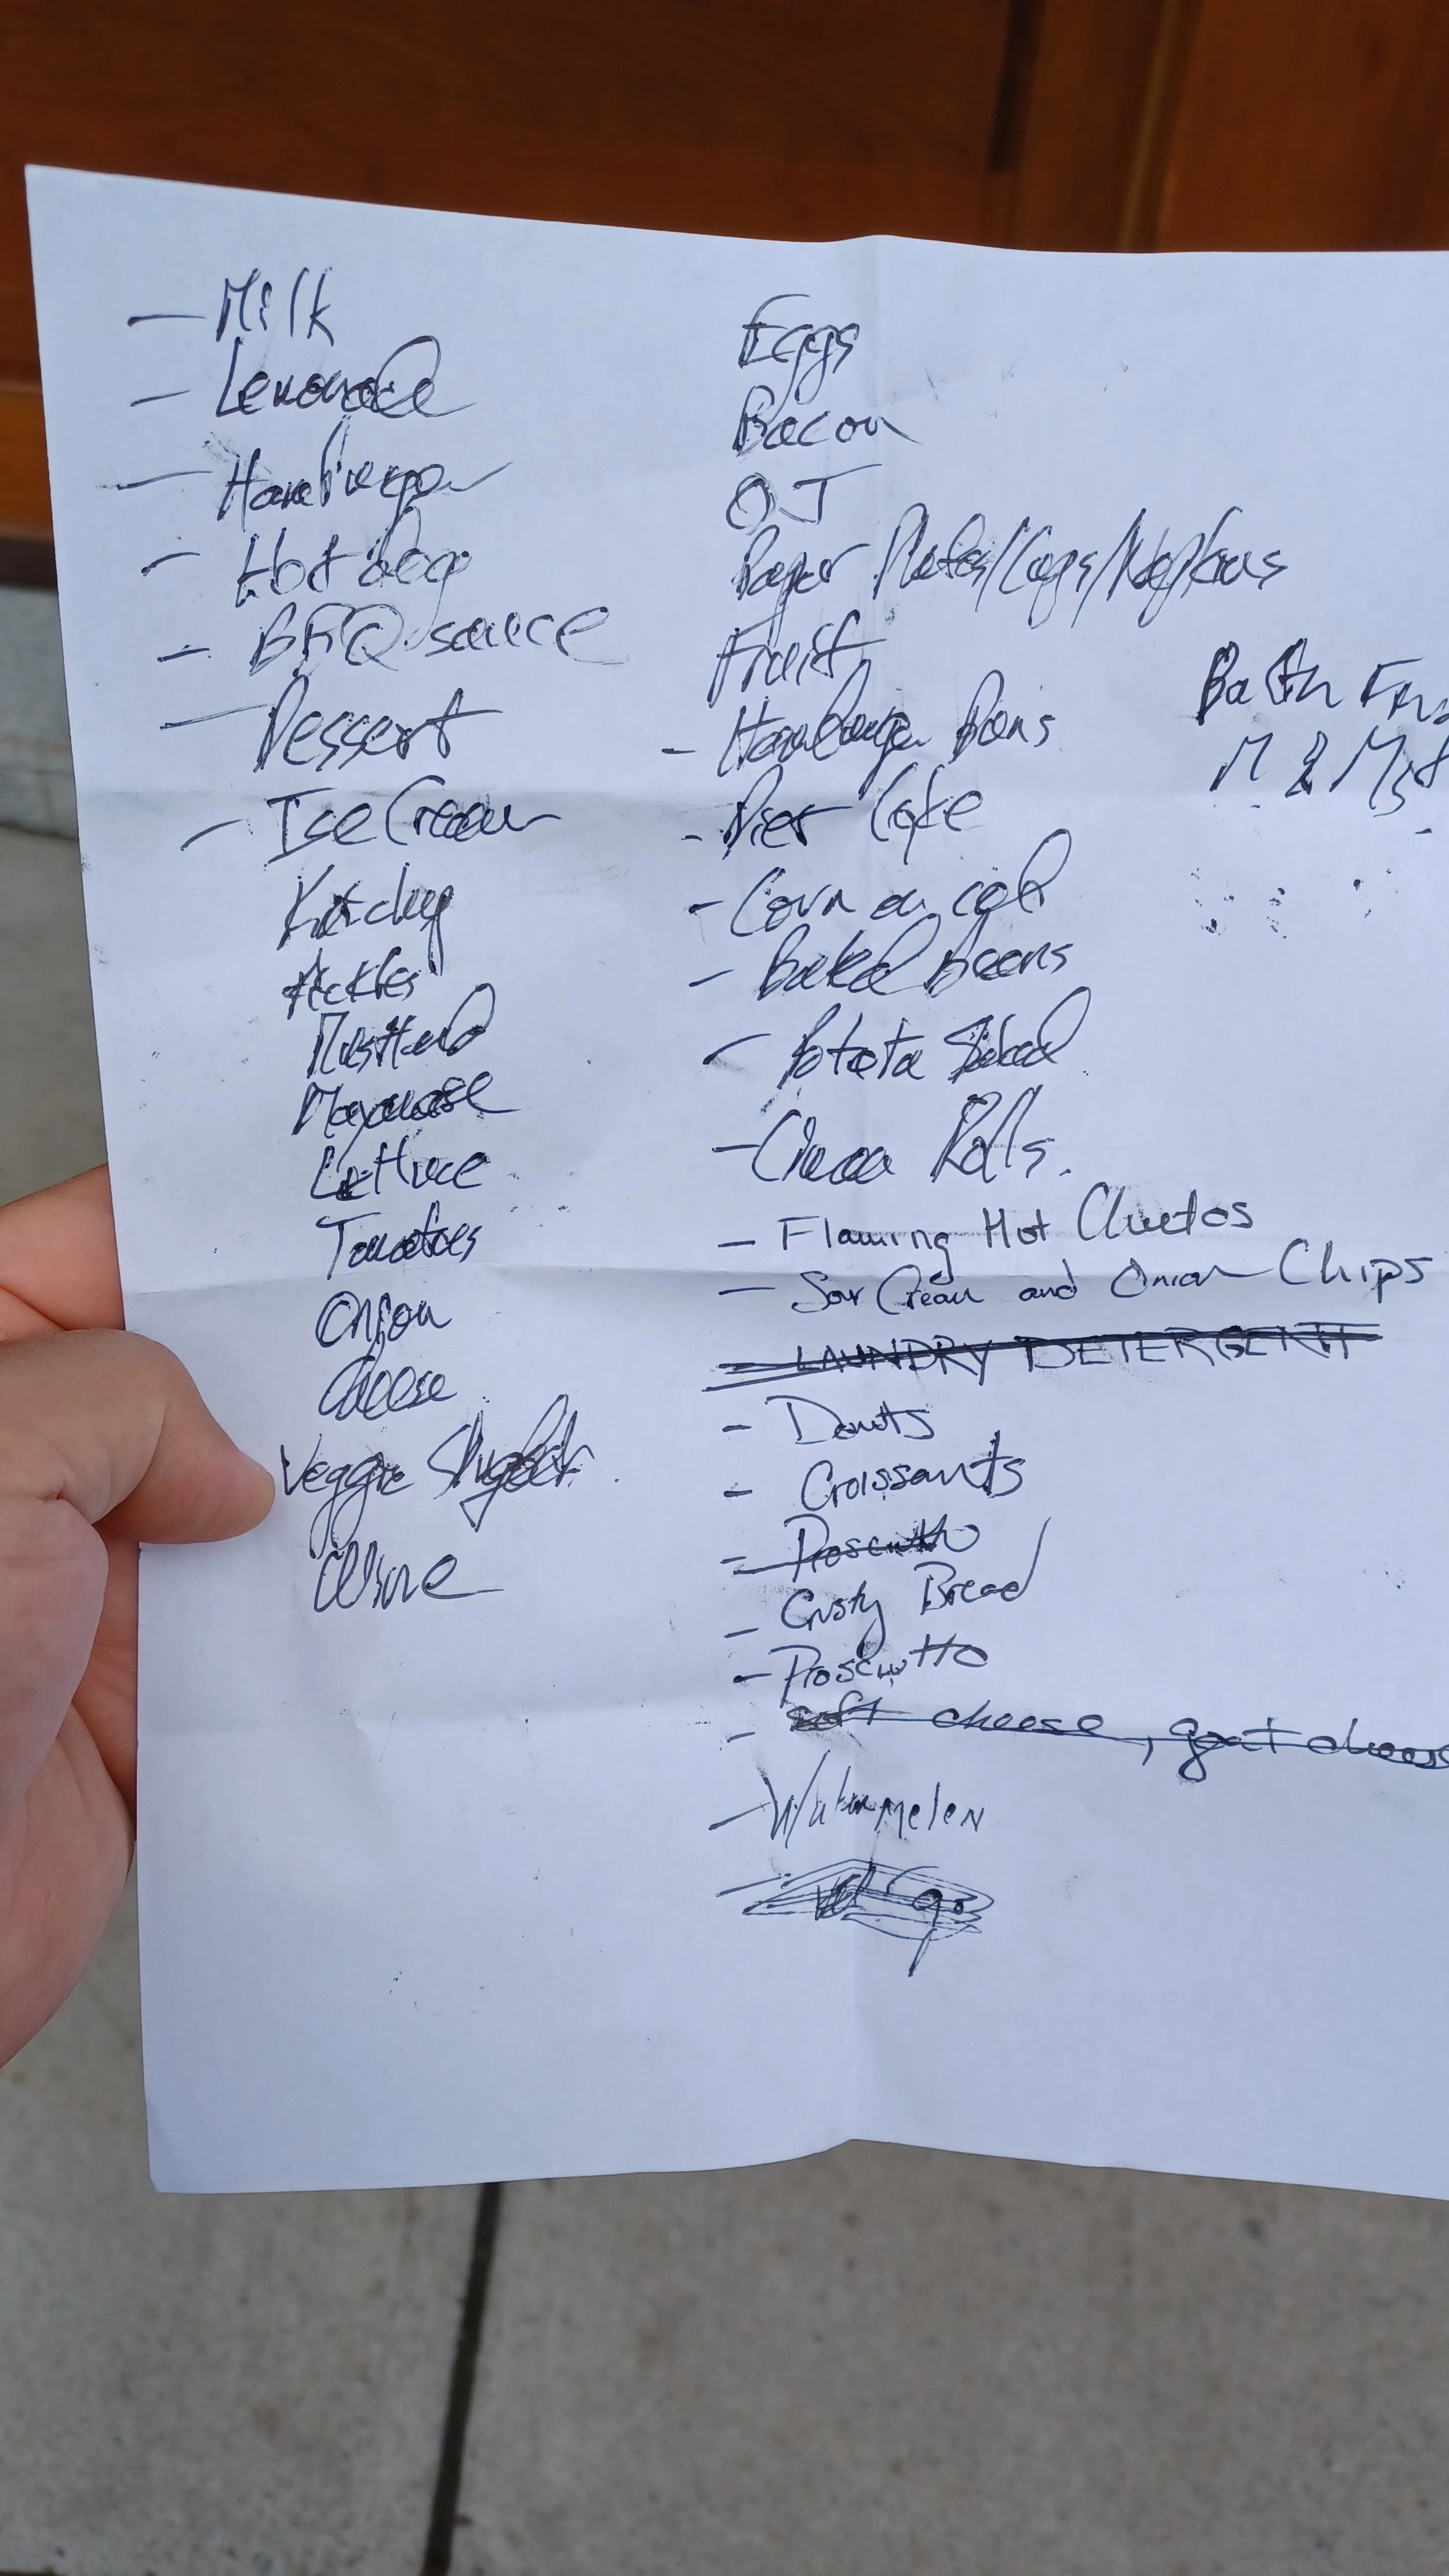 - Milk
- Lemonade
- Hamburger
- Hot dog
- BBQ sauce
- Dessert
- Ice Cream
Ketchup
Pickles
Mustard
Mayonase
Lettuce
Tomatoes
Onion
Cheese
Veggie
Wine
Eggs
Bacon
OJ
Paper Plates/Cups/Napkins
Fruit
- Hamburger Buns
- Diet Coke
- Corn on cob
- Baked Beans
- Potato Salad
- Rolls.
- Flaming Hot Cheetos
- Sour Cream and Onion Chips
- LAUNDRY DETERGENT
- Donuts
- Croissants
- Proscutto
- Crusty Bread
- Proscutto
- soft cheese, goat chees
- Watermelon
M & Ms